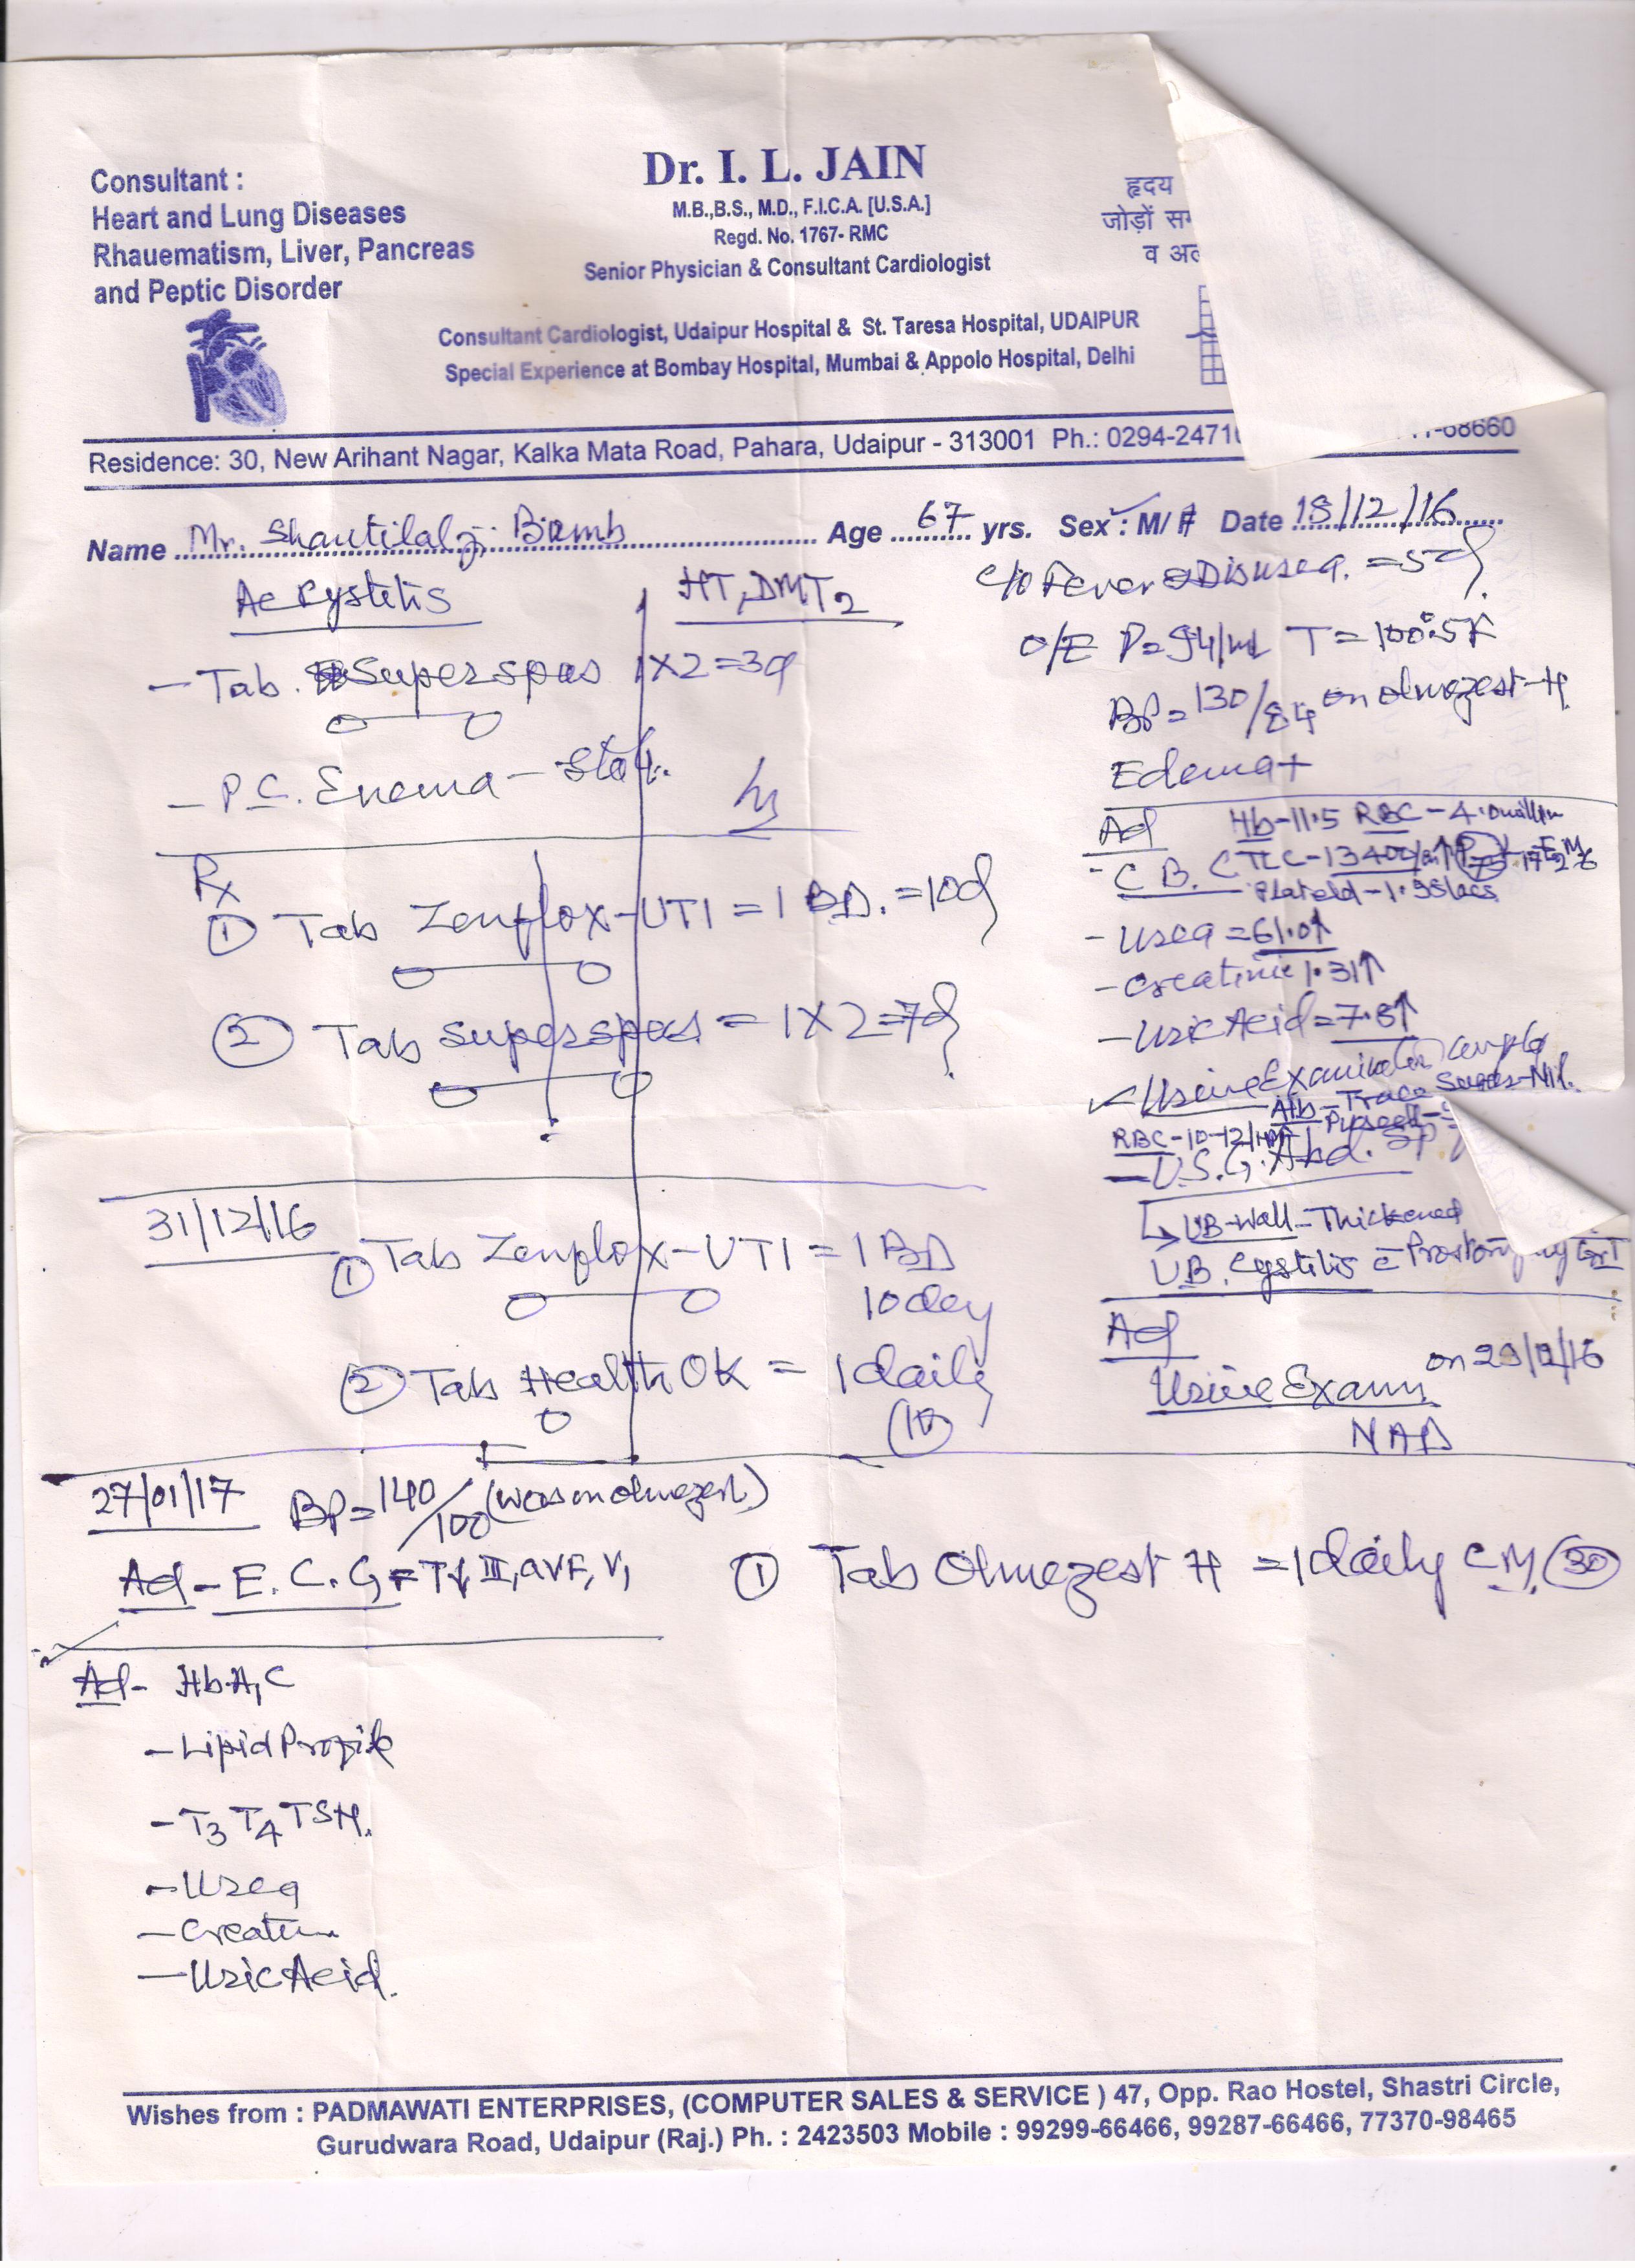 Consultant :
Heart and Lung Diseases
Rhauematism, Liver, Pancreas
and Peptic Disorder
Dr. I. L. JAIN
M.B.,B.S., M.D., F.I.C.A. [U.S.A.]
Regd. No. 1767- RMC
Senior Physician & Consultant Cardiologist
Consultant Cardiologist, Udaipur Hospital & St. Taresa Hospital, UDAIPUR
Special Experience at Bombay Hospital, Mumbai & Appolo Hospital, Delhi
हृदय
जोड़ों
व
Residence: 30, New Arihant Nagar, Kalka Mata Road, Pahara, Udaipur - 313001 Ph.: 0294-2471 68660
Name Mr. Shantilalji Age 67 yrs. Sex : M/ F Date 18/12/16
Ac Cystitis
HT, DMT2
- Tab. Superspas 1X2=3d
- P.C. Enema - Stat.
Rx
① Tab Zenflox-UTI = 1 BD. =10d
② Tab Superspas = 1X2=7d
c/o Fever =5d
O/E P=94/m T=100.5F
BP=130/84 on Olmezest-H
Edema+
Ad
Hb-11.5 RBC-4.0 million
- C.B.C TLC-13400
- Urea = 61.0↑
- Creatinine 1.31↑
- Uric Acid = 7.8↑
- Urine Examination Complete
Alb-Trace Sugar-Nil.
RBC-10-12/HPF
- U.S.G. Abd.
UB-Wall-Thickened
U.B. Cystitis
Ad
Urine Exam. on 29/12/16
NAD
31/12/16
① Tab Zenflox-UTI = 1 BD
10day
② Tab Health OK = 1 daily
(10)
27/01/17 BP=140/100 (was on olmezest)
Ad - E.C.G = T↓ III, avF, V1
① Tab Olmezest H = 1 daily CM. (30)
Ad- HbA1C
- Lipid Profile
- T3 T4 TSH.
- Urea
- Creatin
- Uric Acid.
Wishes from : PADMAWATI ENTERPRISES, (COMPUTER SALES & SERVICE ) 47, Opp. Rao Hostel, Shastri Circle,
Gurudwara Road, Udaipur (Raj.) Ph. : 2423503 Mobile : 99299-66466, 99287-66466, 77370-98465